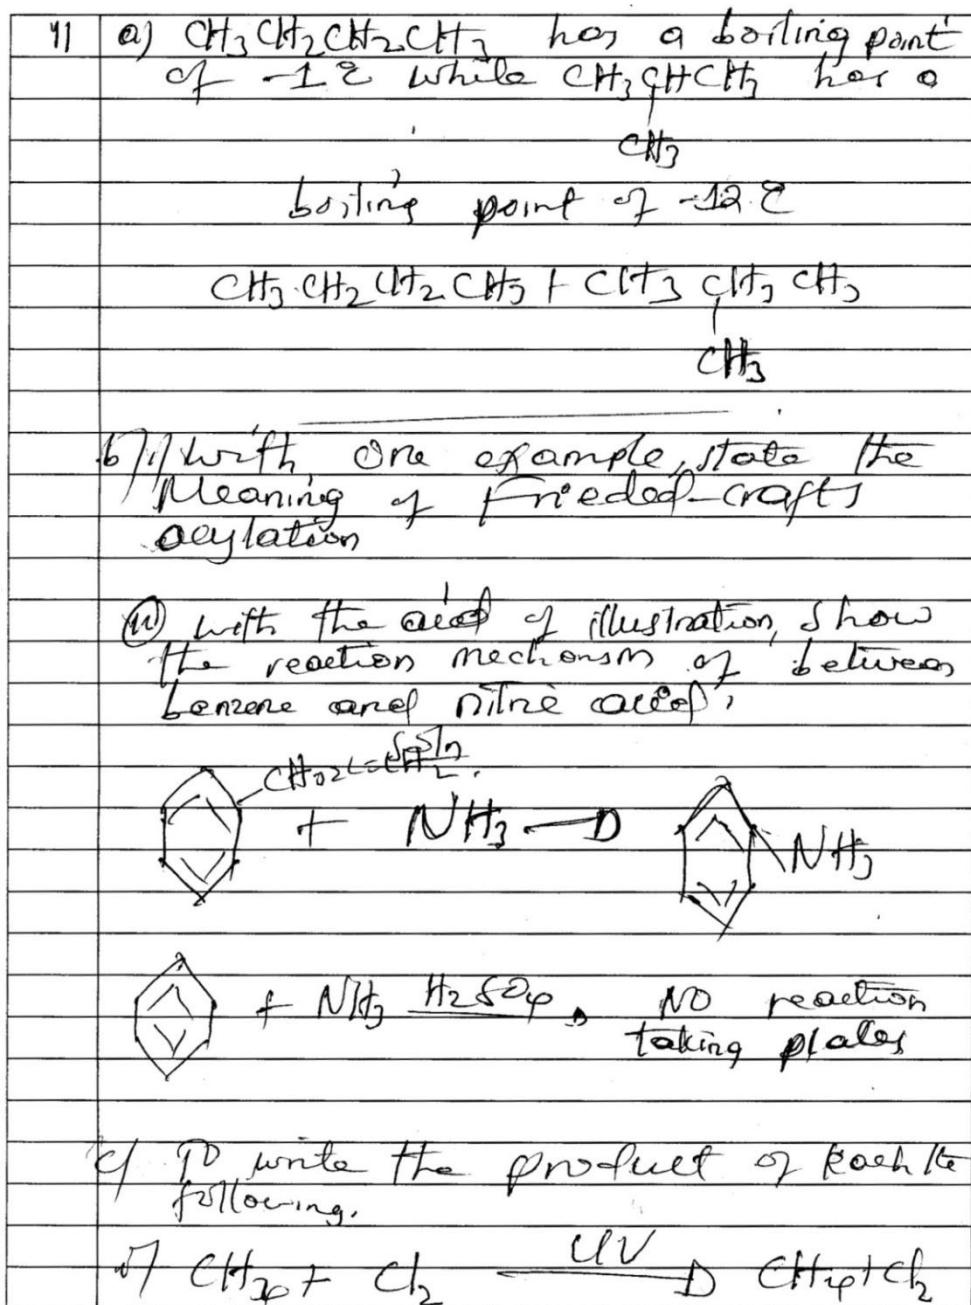 11 a) CH3CH2CH2CH3 has a boiling point
of -1℃ while CH3CHCH3 has a
CH3
boiling point of -12℃
CH3CH2CH2CH3 + CH3 CH3 CH3
CH3
b) i) With One example, state the
Meaning of Frieded-crafts
acylation
ii) with the aied of illustration, show
the reaction mechansm of between
benzene and nitric acied.
+ NH3 → NH3
+ NH3 H2SO4 → NO reaction
taking plales
c) To write the product of Each the
following.
CH4 + Cl2 UV → CH4 + Cl2